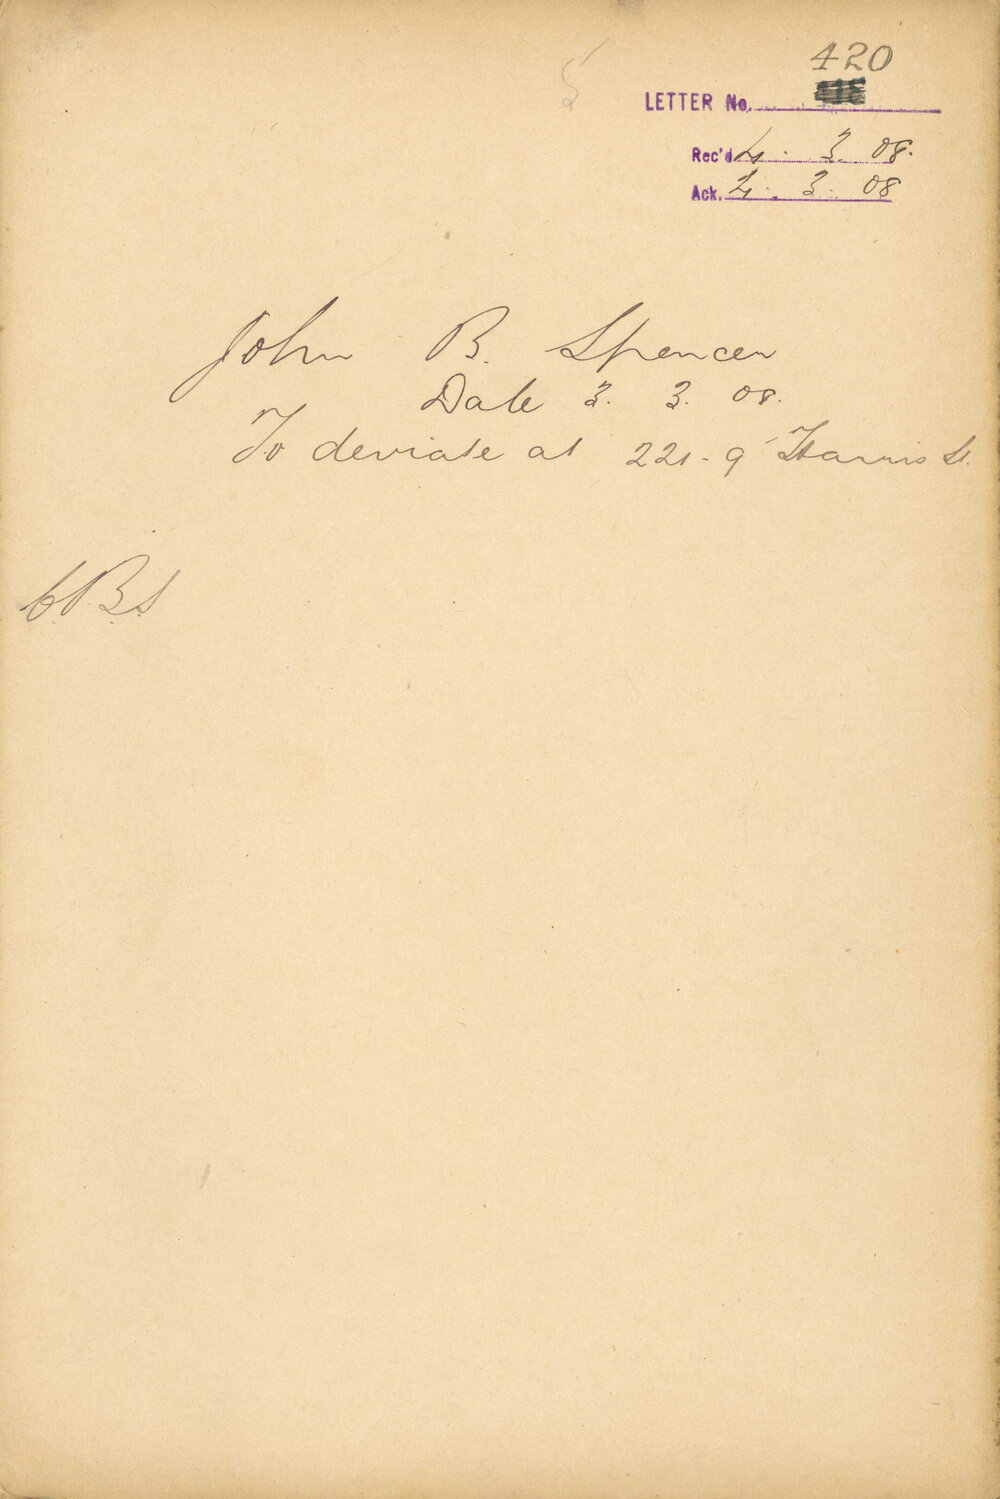 420
LETTER No.
Rec'd 4. 3. 08.
Ack. 4. 3. 08
John B. Spencer
Date 3. 3. 08.
To deviate at 221-9 Harris St.
C.B.S